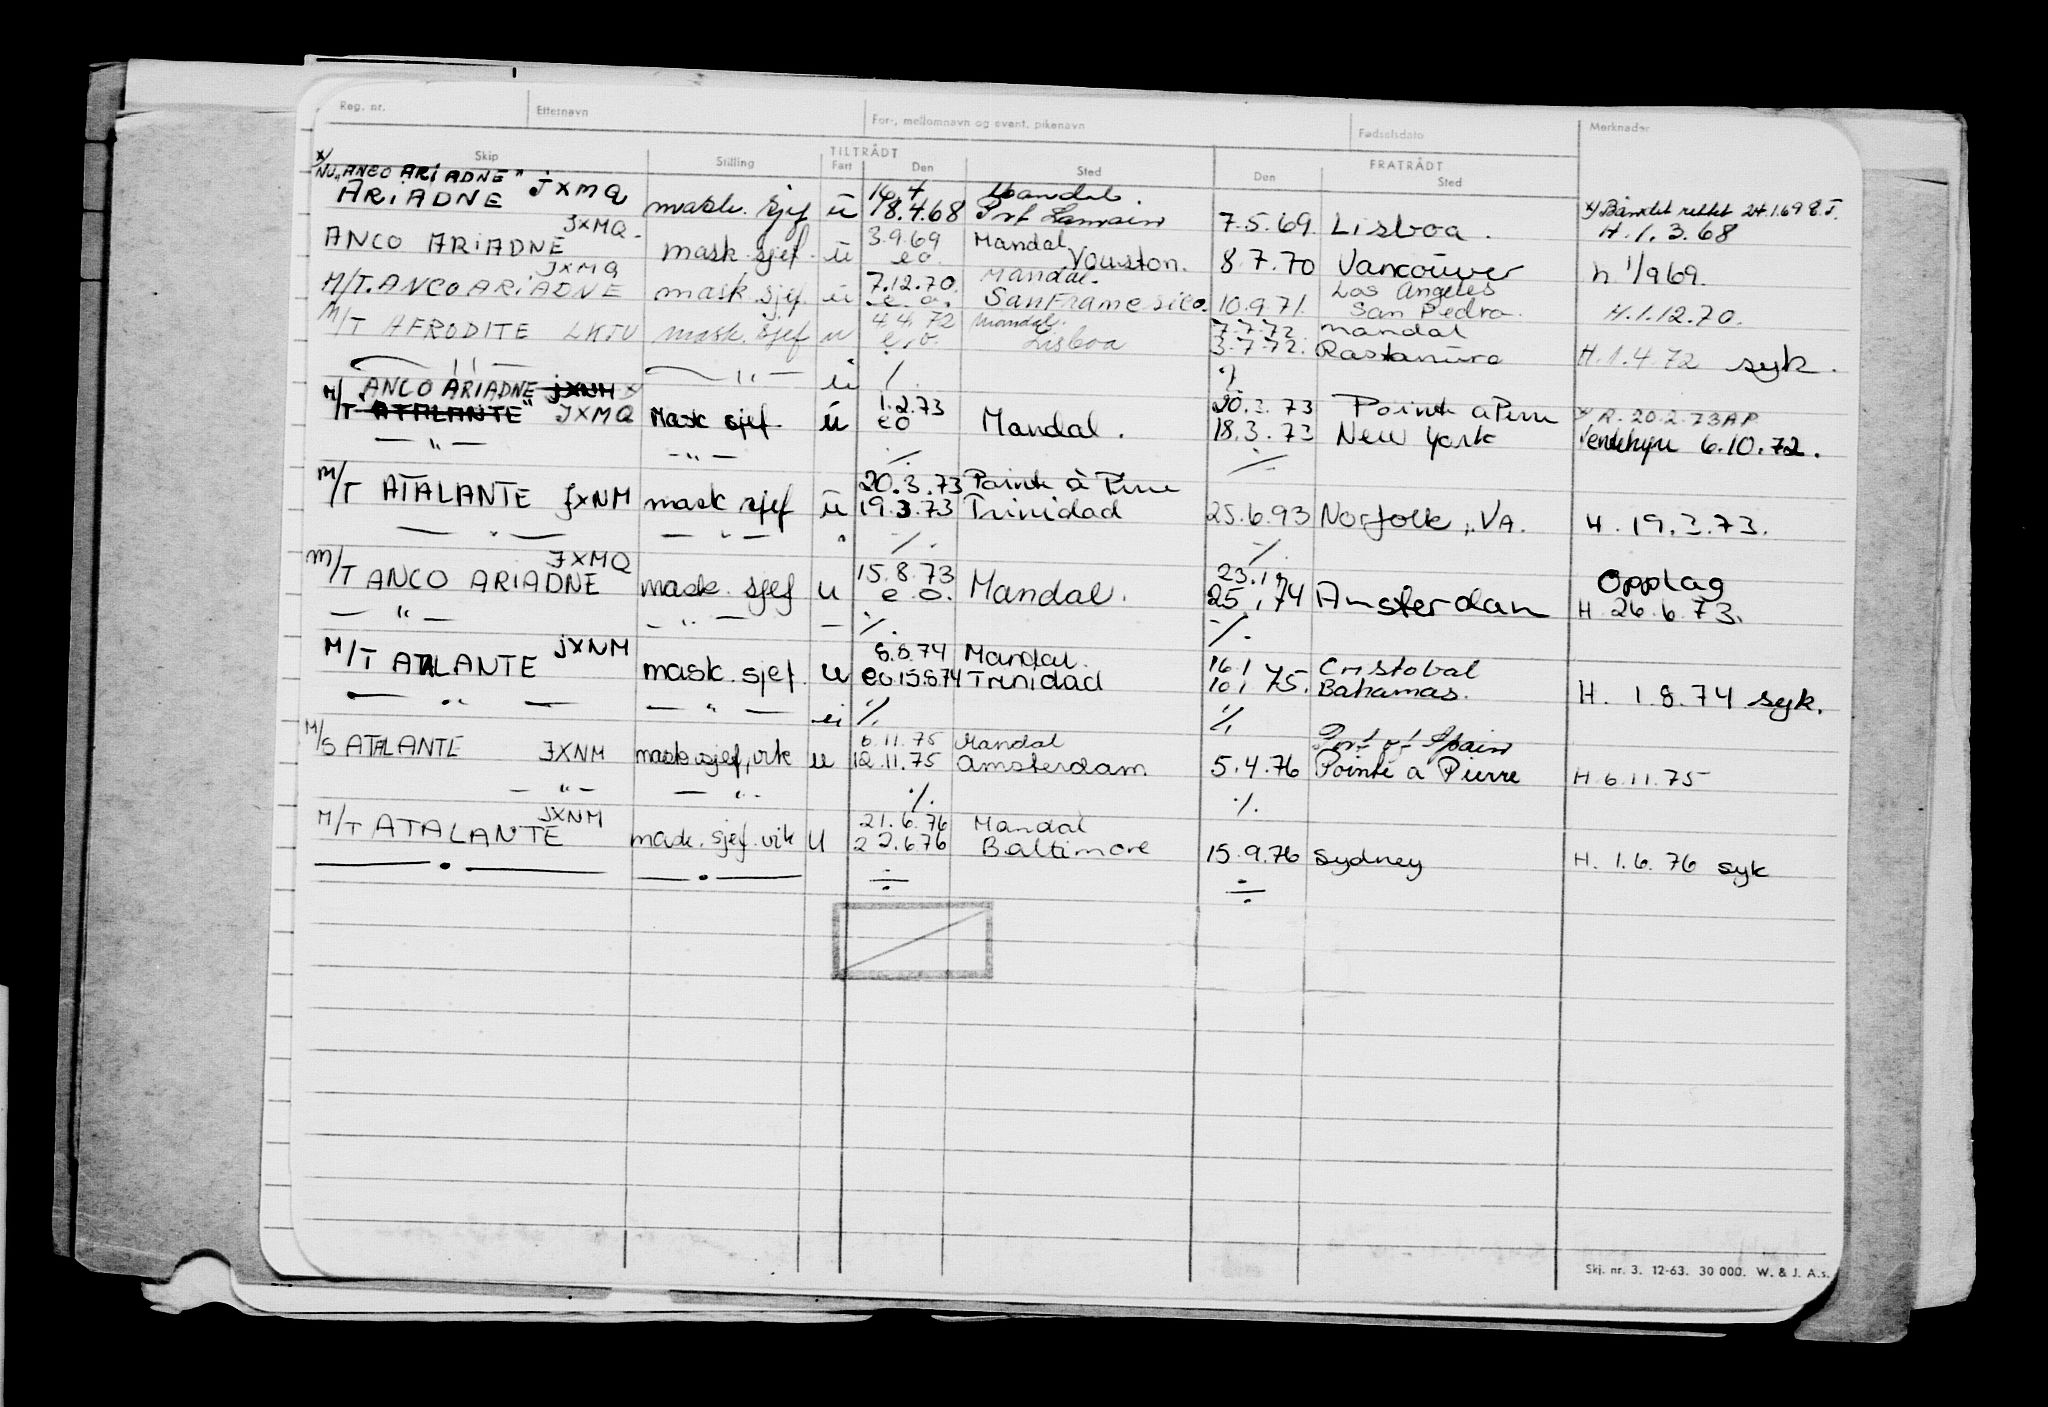 Reg. nr. Etternavn For-, mellomnavn og event. pikenavn Fødselsdato Merknader
Skip Stilling TILTRÅDT FRATRÅDT
Fart Den Sted Den Sted
x/ NU "ANCO ARIADNE" 16.4 Mandal.
ARIADNE JXMQ mask. sjef ü 18.4.68 7.5.69 Lisboa. x/ Båndet rettet 24.1.69 H.1.3.68
JXMQ. 3.9.69 Mandal
ANCO ARIADNE mask. sjef. ü eo. Houston. 8.7.70 Vancouver h 1/9 69.
JXMQ 7.12.70. Mandal. Los Angeles
M/T. ANCO ARIADNE mask sjef ü e.o. 10.9.71. San Pedro. H.1.12.70.
4.4.72 Mandal. 7.7.72 Mandal
M/T AFRODITE LKTU mask. sjef u e.o. Lisboa 3.7.72. Rastanura H.1.4.72 syk.
— " — — " — ü ./. ./.
"ANCO ARIADNE JXNM x/ 1.2.73 20.3.73 Pointe a Pierre x/ R. 20.2.73 AP
M/T ATALANTE" JXMQ Mask sjef. ü eo Mandal. 18.3.73 New York 6.10.72.
— " — — " — ./. ./.
20.3.73 Pointe à Pierre
M/T ATALANTE JXNM mask sjef ü 19.3.73 Trinidad 25.6.93 Norfolk, VA. H. 19.3.73.
— " — — " — " ./. ./.
JXMQ 15.8.73 23.1, Opplag
M/T ANCO ARIADNE mask. sjef u e.o. Mandal. 25, 74 Amsterdam H. 26.6.73.
— " — — " — — ./. ./.
JXNM 8.8.74 Mandal. 16.1 Cristobal
M/T ATALANTE mask. sjef. u eo 15.8.74 Trinidad 10, 75. Bahamas. H. 1.8.74 syk.
— " — — " — ü ./. ./.
6.11.75 Mandal Port of Spain
M/S ATALANTE JXNM mask sjef, vik u 12.11.75 Amsterdam 5.4.76 Pointe a Pierre H 6.11.75
— " — — " — ./. ./.
JXNM 21.6.76 Mandal
M/T ATALANTE mask. sjef. vik U 22.6.76 Baltimore 15.9.76 Sydney H. 1.6.76 syk
— " — — " — ÷ ÷
Skj. nr. 3. 12-63. 30 000. W. & J. A.s.